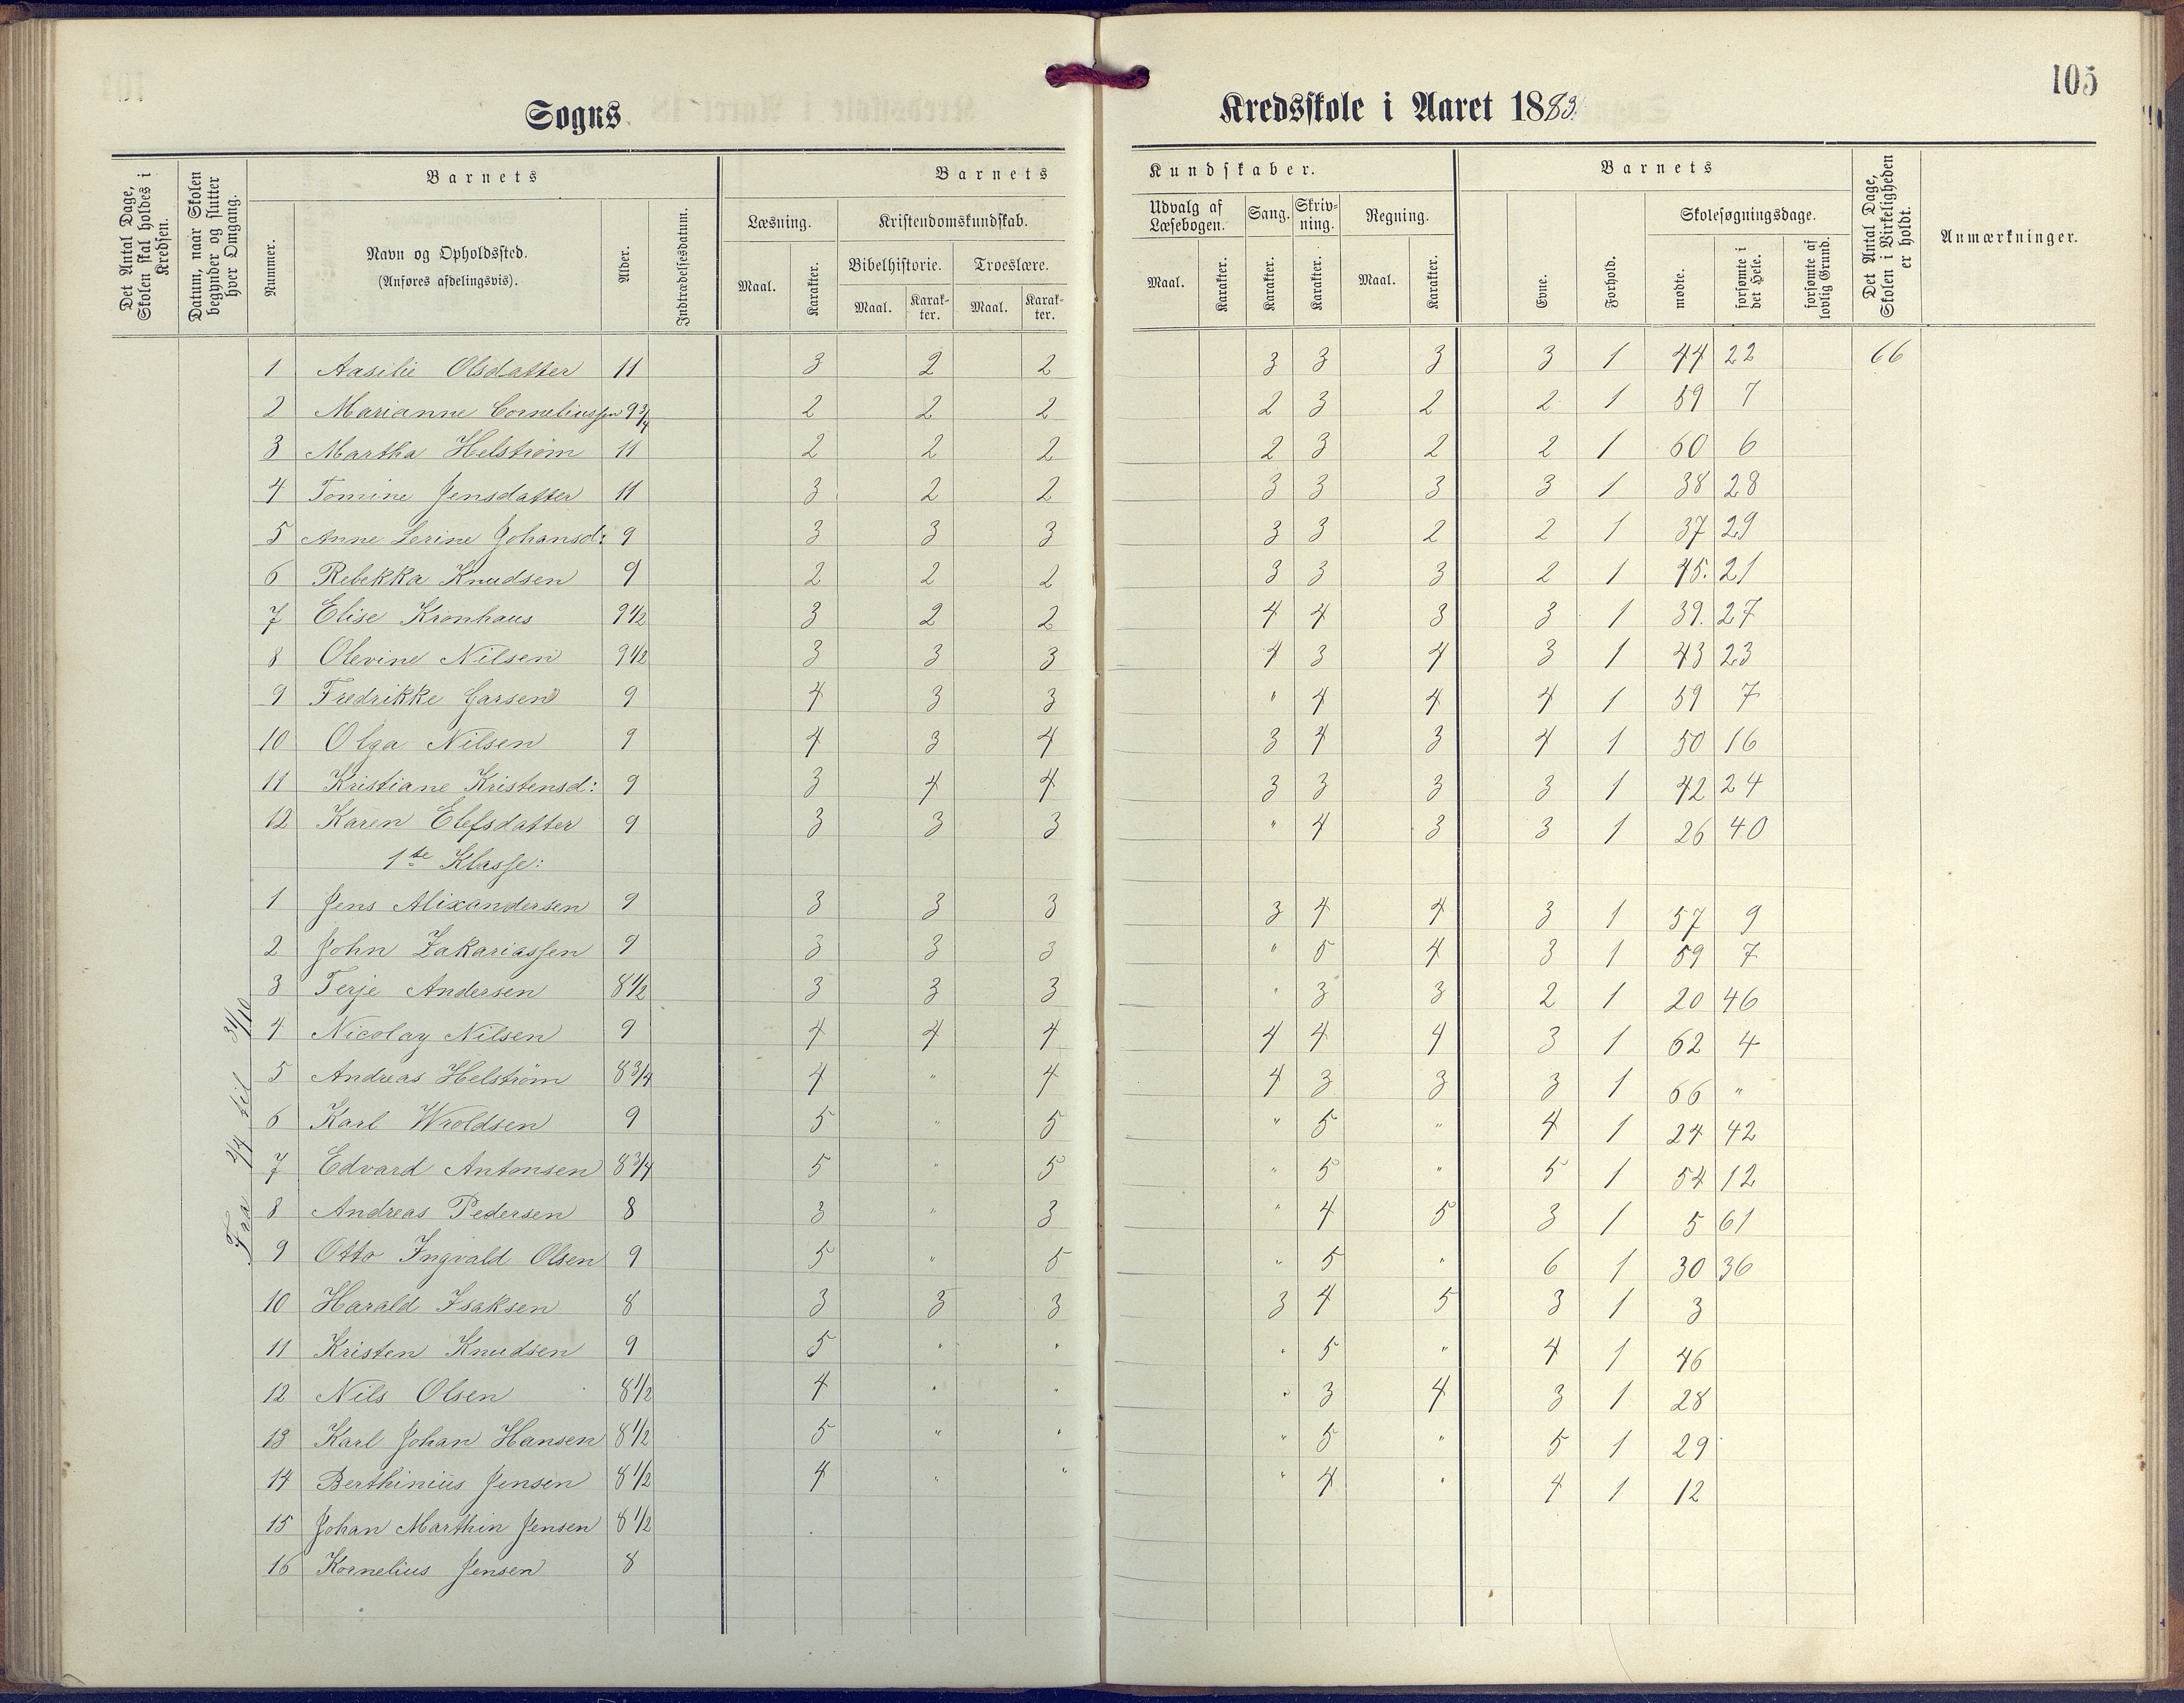 105
Sogns Kredsskole i Aaret 1883.
Det Antal Dage, Skolen skal holdes i Kredsen.
Datum, naar Skolen begynder og slutter hver Omgang.
Barnets
Nummer.
Navn og Opholdssted.
(Anføres afdelingsvis).
Alder.
Indtrædelsesdatum.
Barnets Kundskaber.
Læsning.
Maal. Karakter.
Kristendomskundskab.
Bibelhistorie. Troeslære.
Maal. Karak-ter. Maal. Karak-ter.
Udvalg af Læsebogen. Sang. Skriv-ning. Regning.
Maal. Karakter. Karakter. Karakter. Maal. Karakter.
Barnets
Evne. Forhold.
Skolesøgningsdage.
mødte. forsømte i det Hele. forsømte af lovlig Grund.
Det Antal Dage, Skolen i Virkeligheden er holdt.
Anmærkninger.
1 Aasilie Olsdatter 11 3 2 2 3 3 3 3 1 44 22 66
2 Marianne Corneliussen 9 3/4 2 2 2 2 3 2 2 1 59 7
3 Martha Helstrøm 11 2 2 2 2 3 2 2 1 60 6
4 Tomine Jensdatter 11 3 2 2 3 3 3 3 1 38 28
5 Anne Serine Johansd: 9 3 3 3 3 3 2 2 1 37 29
6 Rebekka Knudsen 9 2 2 2 3 3 3 2 1 45. 21
7 Elise Kronhaus 9 1/2 3 2 2 4 4 3 3 1 39. 27
8 Olevine Nilsen 9 1/2 3 3 3 4 3 4 3 1 43 23
9 Fredrikke Garsen 9 4 3 3 " 4 4 4 1 59 7
10 Olga Nilsen 9 4 3 4 3 4 3 4 1 50 16
11 Kristiane Kristensd: 9 3 4 4 3 3 3 3 1 42 24
12 Karen Elefsdatter 9 3 3 3 " 4 3 3 1 26 40
1ste Klasse:
1 Jens Alixandersen 9 3 3 3 3 4 4 3 1 57 9
2 John Zakariassen 9 3 3 3 " 5 4 3 1 59 7
3 Terje Andersen 8 1/2 3 3 3 " 3 3 2 1 20 46
4 Nicolay Nilsen 9 4 4 4 4 4 4 3 1 62 4
5 Andreas Helstrøm 8 3/4 4 " 4 4 3 3 3 1 66 "
6 Karl Wroldsen 9 5 " 5 " 5 " 4 1 24 42
7 Edvard Antonsen 8 3/4 5 " 5 " 5 " 5 1 54 12
8 Andreas Pedersen 8 3 " 3 " 4 5 3 1 5 61
9 Otto Ingvald Olsen 9 5 " 5 " 5 " 6 1 30 36
10 Harald Isaksen 8 3 3 3 3 4 5 3 1 3
11 Kristen Knudsen 9 5 " " " 5 " 4 1 46
12 Nils Olsen 8 1/2 4 " " " 3 4 3 1 28
13 Karl Johan Hansen 8 1/2 5 " " " 5 " 5 1 29
14 Berthinius Jensen 8 1/2 4 " " " 4 " 4 1 12
15 Johan Marthin Jensen 8 1/2
16 Kornelius Jensen 8
Fra 2/4 til 31/10